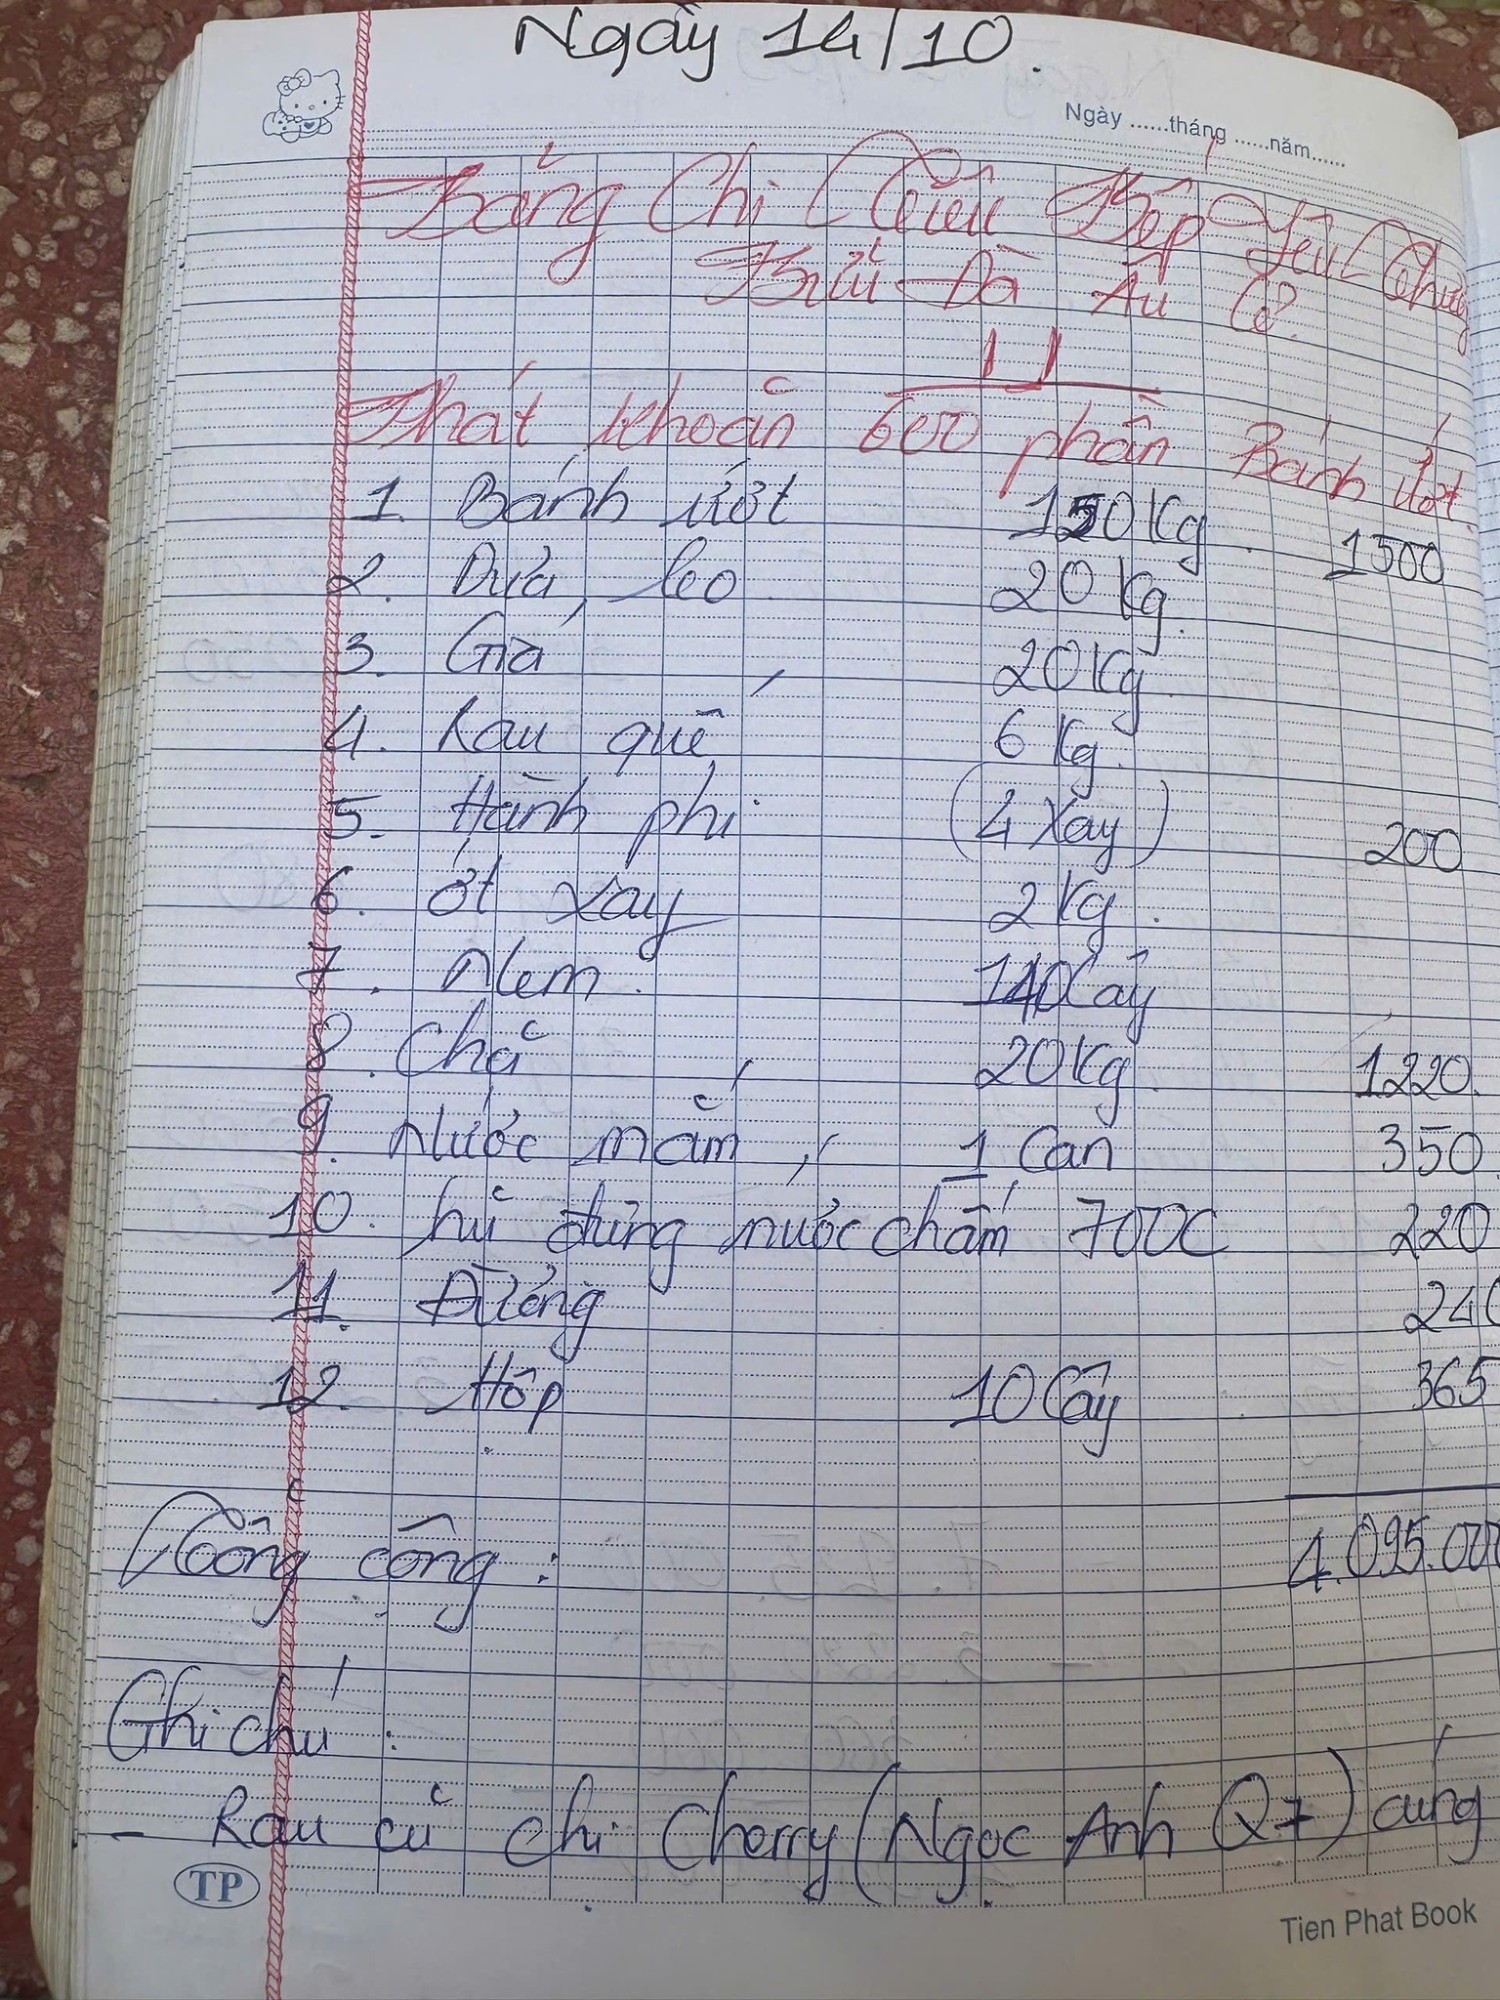 Ngày 14/10.
Ngày ......tháng ......năm......
Bảng Chi Tiêu Bếp Yêu Thương
Bửu Đà Âu Cơ
Phát khoản 600 phần Bánh Ướt
1. Bánh ướt 150 Kg. 1500
2. Dưa leo 20 Kg.
3. Giá 20 Kg.
4. Rau quế 6 Kg.
5. Hành phi (4 Xay) 200
6. Ớt xay 2 Kg.
7. Nem 140 Cây
8. Chả 20 Kg. 1220.
9. Nước mắm 1 Can 350
10. hủ đựng nước chấm 700C 220
11. Đường 240
12. Hộp 10 Cây 365
Tổng cộng: 4.095.000
Ghi chú:
- Rau củ chị Cherry (Ngọc Anh Q7) cúng
TP
Tien Phat Book